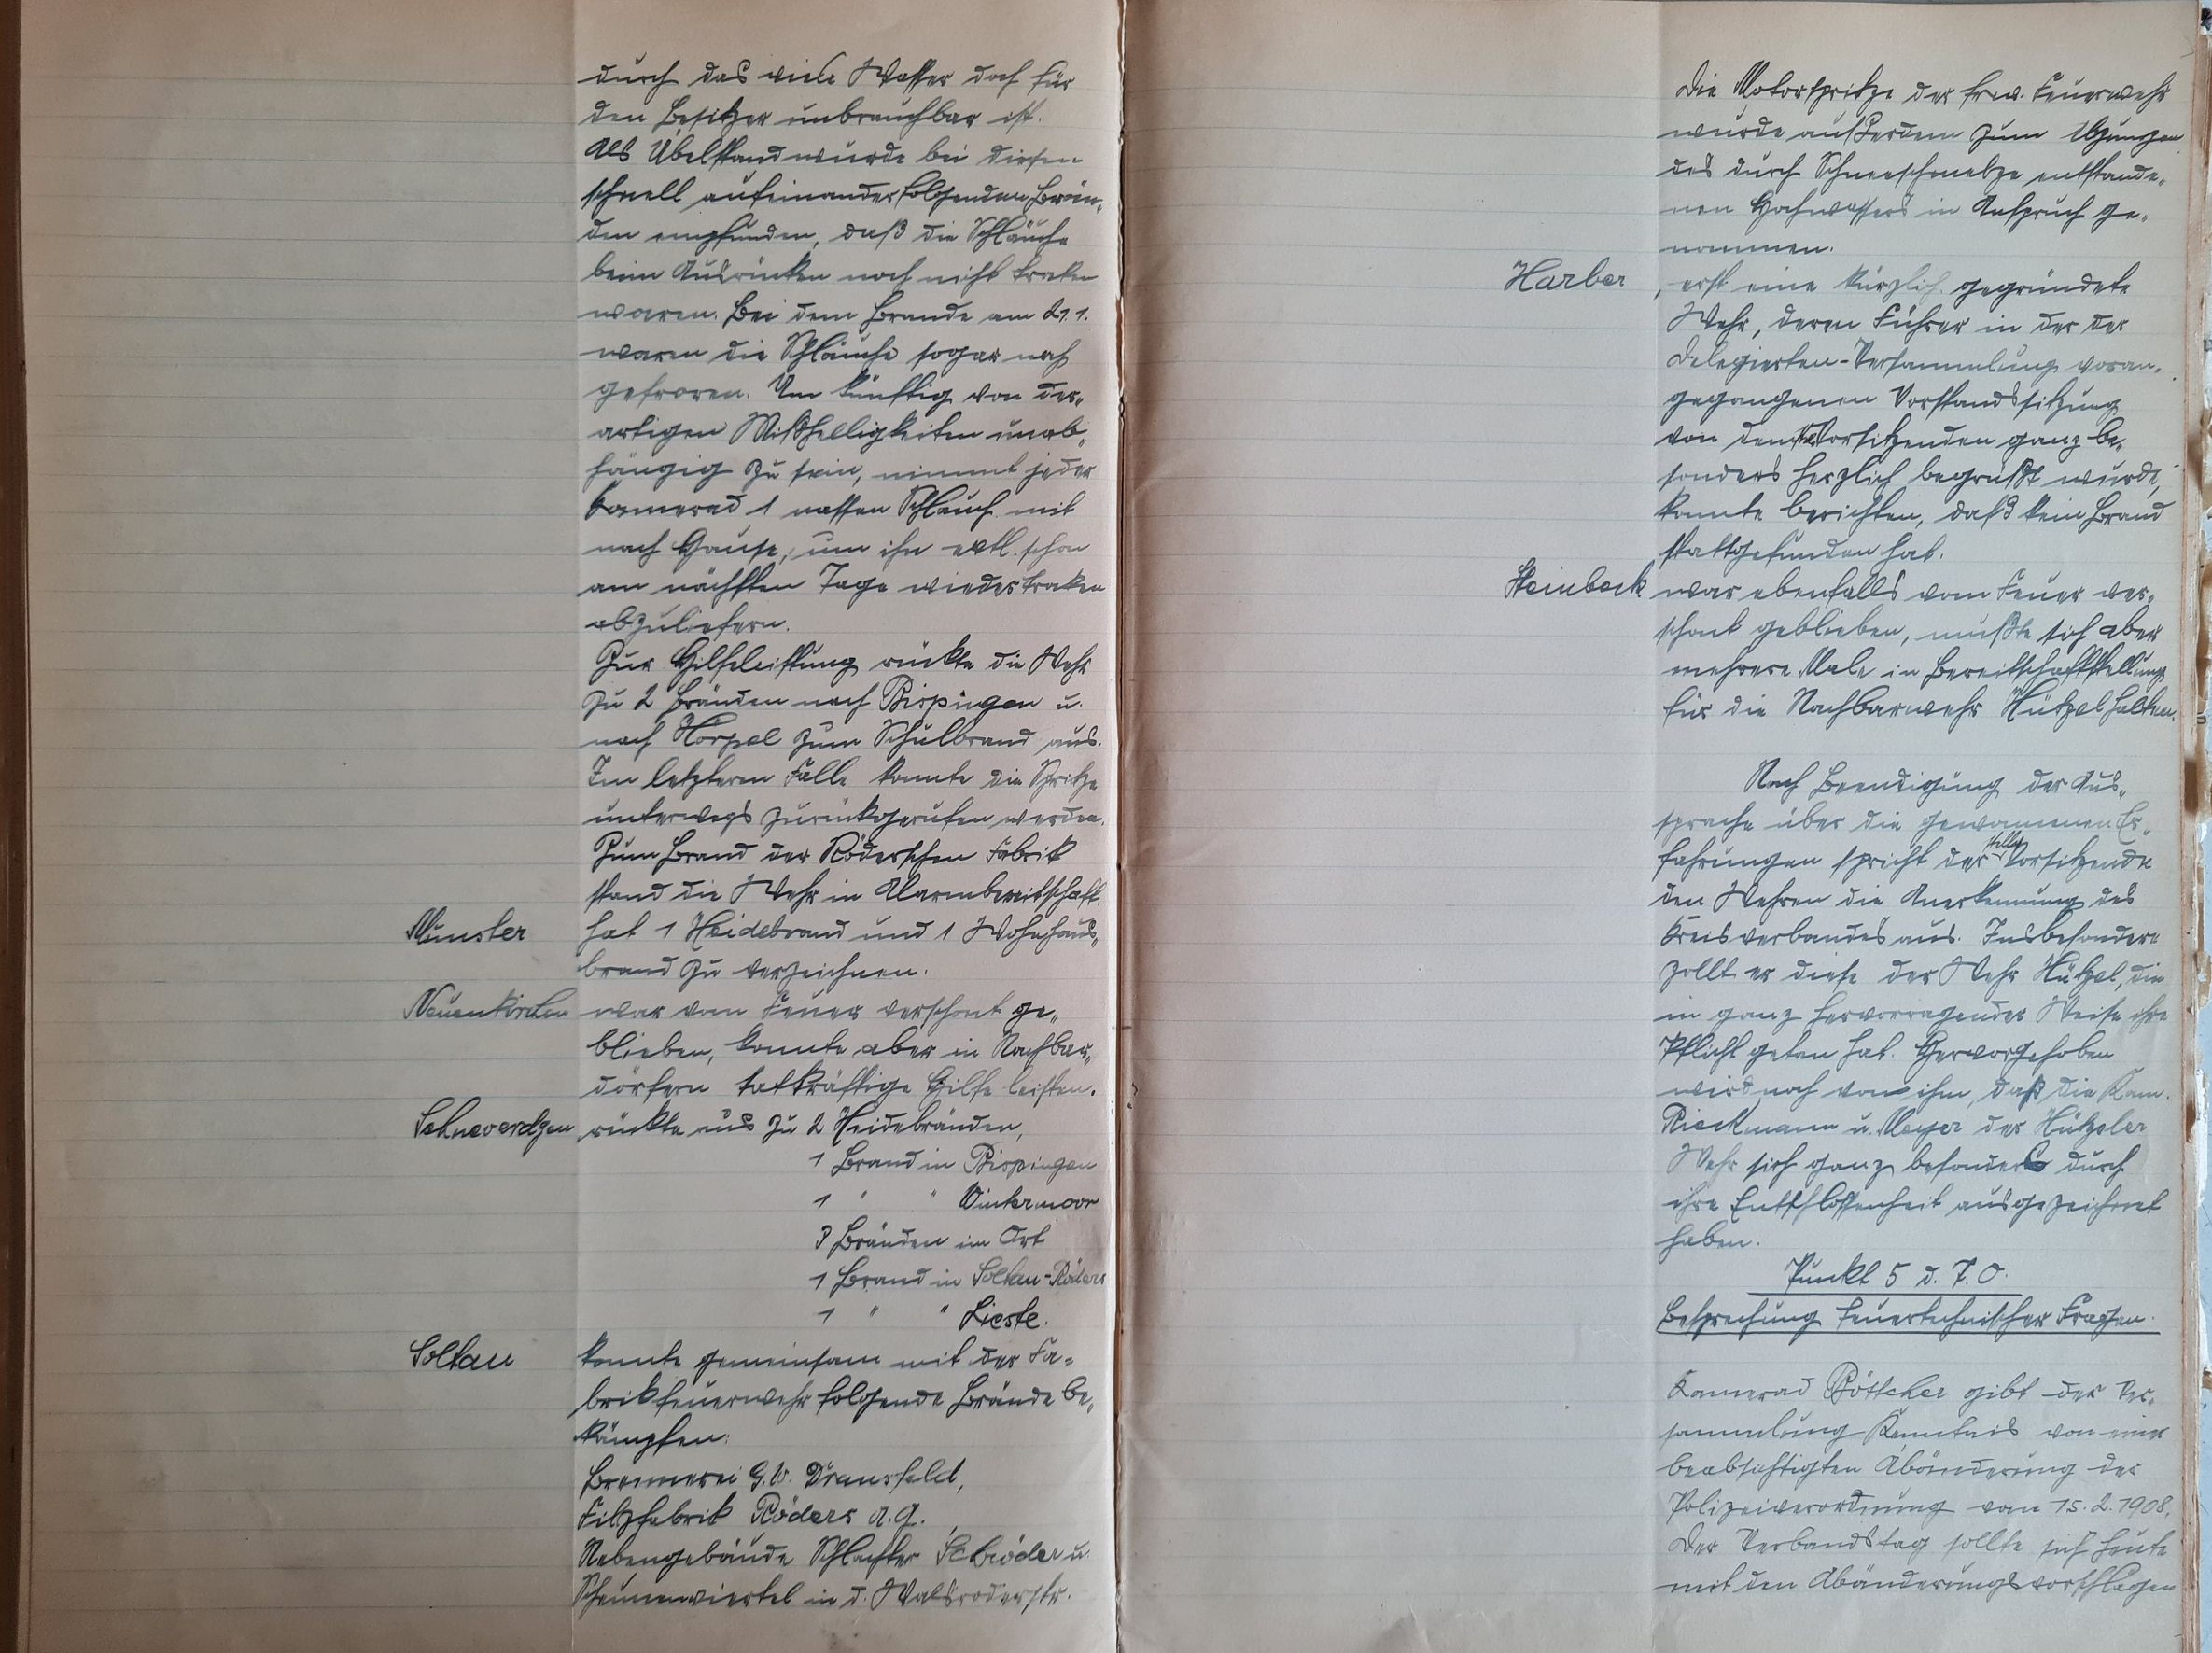 durch das viele Wasser doch für
den Besitzer unbrauchbar ist.
Als Übelstand wurde bei diesen
schnell aufeinander folgenden Brän-
den empfunden, daß die Schläuche
beim Ausrücken noch nicht trocken
waren. Bei dem Brande am 21.1.
waren die Schläuche sogar noch
gefroren. Um künftig von der-
artigen Mißhelligkeiten unab-
hängig zu sein, nimmt jeder
Kamerad 1 nassen Schlauch mit
nach Hause, um ihn evtl. schon
am nächsten Tage wieder trocken
abzuliefern.
Zur Hilfeleistung rückte die Wehr
zu 2 Bränden nach Bispingen u.
nach Hörpel zum Schulbrand aus.
Im letzteren Falle konnte die Spritze
unterwegs zurückgerufen werden.
Zum Brand der Röderschen Fabrik
stand die Wehr in Alarmbereitschaft.
Munster hat 1 Heidebrand und 1 Wohnhaus-
brand zu verzeichnen.
Neuenkirchen war vom Feuer verschont ge-
blieben, konnte aber in Nachbar-
dörfern tatkräftige Hilfe leisten.
Schneverdgen rückte aus zu 2 Heidebränden,
1 Brand in Bispingen
1 " " Wintermoor
3 Bränden im Ort
1 Brand in Soltau-Röders
1 " " Lieste.
Soltau konnte gemeinsam mit der Fa-
brikfeuerwehr folgende Brände be-
kämpfen:
Brennerei G.W. Dransfeld,
Filzfabrik Röders A.G.,
Nebengebäude Schlachter Schröder u.
Scheunenviertel in d. Walsroderstr.
Die Motorspritze der frw. Feuerwehr
wurde außerdem zum Abpumpen
des durch Schneeschmelze entstande-
nen Hochwassers in Anspruch ge-
nommen.
Harber, erst eine kürzlich gegründete
Wehr, deren Führer in der der
Delegierten-Versammlung voran-
gegangenen Vorstandssitzung
von dem Vorsitzenden ganz be-
sonders herzlich begrüßt wurde,
konnte berichten, daß kein Brand
stattgefunden hat.
Steinbeck war ebenfalls vom Feuer ver-
schont geblieben, mußte sich aber
mehrere Male in Bereitschaftstellung
für die Nachbarwehr Hützel halten.
Nach Beendigung der Aus-
sprache über die gewonnenen Er-
fahrungen spricht der stellv. Vorsitzende
den Wehren die Anerkennung des
Kreisverbandes aus. Insbesondere
zollt er diese der Wehr Hützel, die
in ganz hervorragender Weise ihre
Pflicht getan hat. Hervorgehoben
wird noch von ihm, daß die Kam.
Rieckmann u. Meyer der Hützeler
Wehr sich ganz besonders durch
ihre Entschlossenheit ausgezeichnet
haben.
Punkt 5 d. T.O.
Besprechung feuertechnischer Fragen.
Kamerad Böttcher gibt der Ver-
sammlung Kenntnis von einer
beabsichtigten Abänderung der
Polizeiverordnung vom 15.2.1908.
Der Verbandstag sollte sich heute
mit den Abänderungsvorschlägen